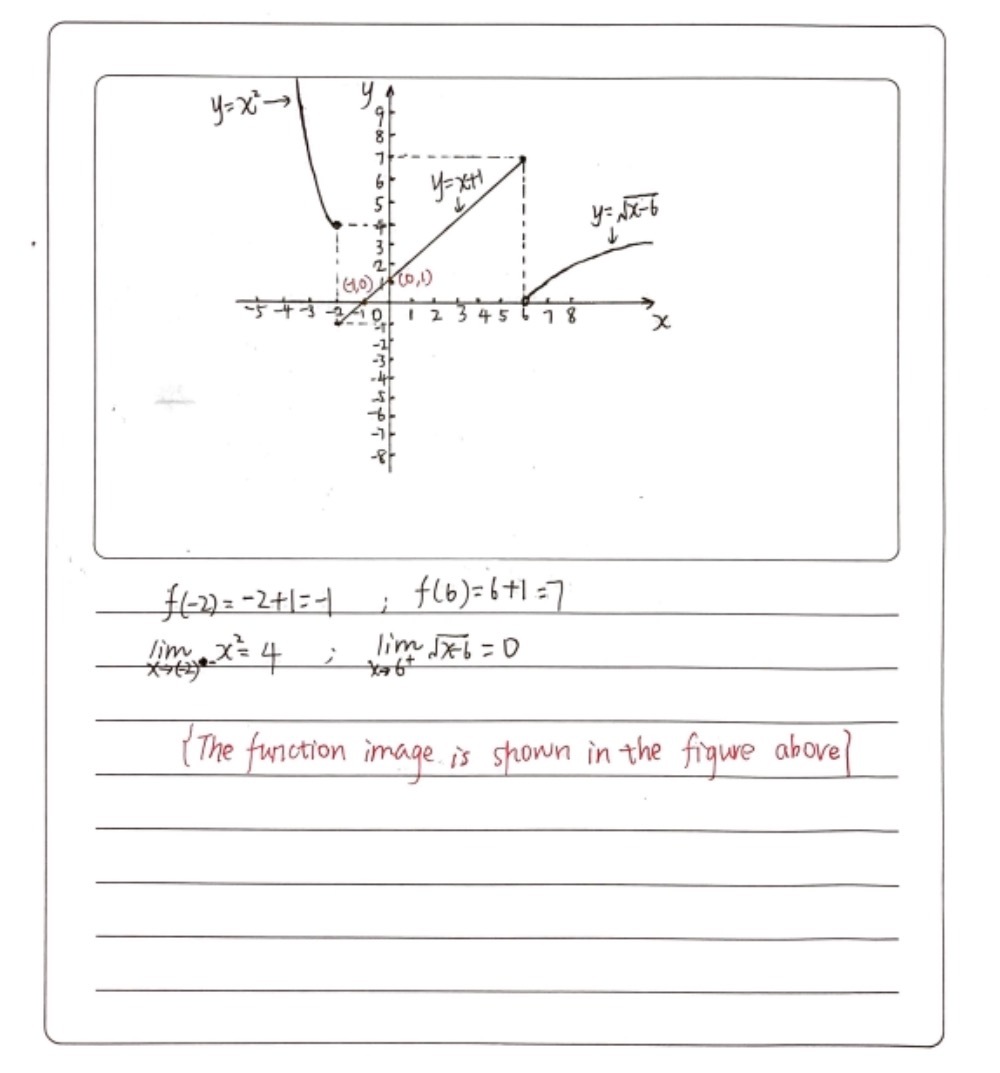 y=x²→
y
9
8
7
6
5
4
3
2
1
y=x+1
y=√x-6
(-1,0)
(0,1)
-5 -4 -3 -2 -1 0 1 2 3 4 5 6 7 8
x
-1
-2
-3
-4
-5
-6
-7
-8
f(-2)=-2+1=-1 ; f(6)=6+1=7
lim x→(-2)⁻ x²=4 ; lim x→6⁺ √x-6 = 0
{The function image is shown in the figure above}